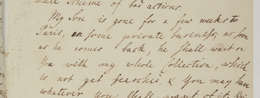 scheme of his actions.
My Son is gone for a few weeks to
Paris, on some private business, as soon
as he comes back, he shall wait on
You with my whole Collection, which
is not great & You may have
whatever You shall want of it.